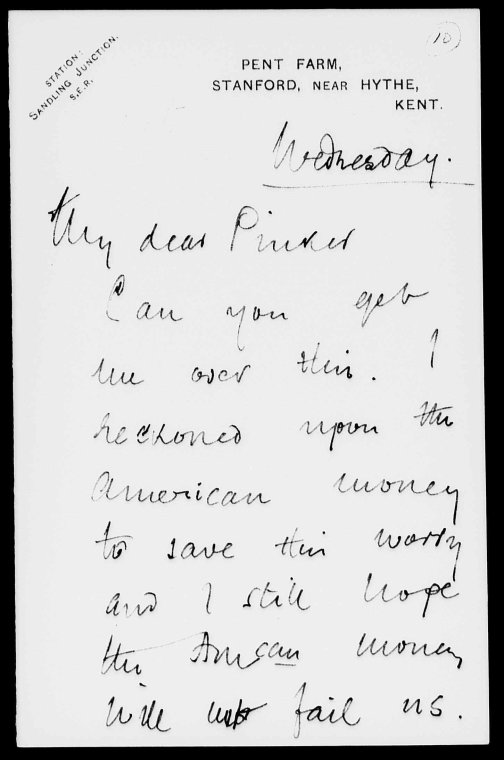 10
STATION:
SANDLING JUNCTION.
S.E.R.
PENT FARM,
STANFORD, NEAR HYTHE,
KENT.
Wednesday.
My dear Pinker
Can you get
me over this. I
reckoned upon the
American money
to save this worry
and I still hope
the Amcan money
will not fail us.